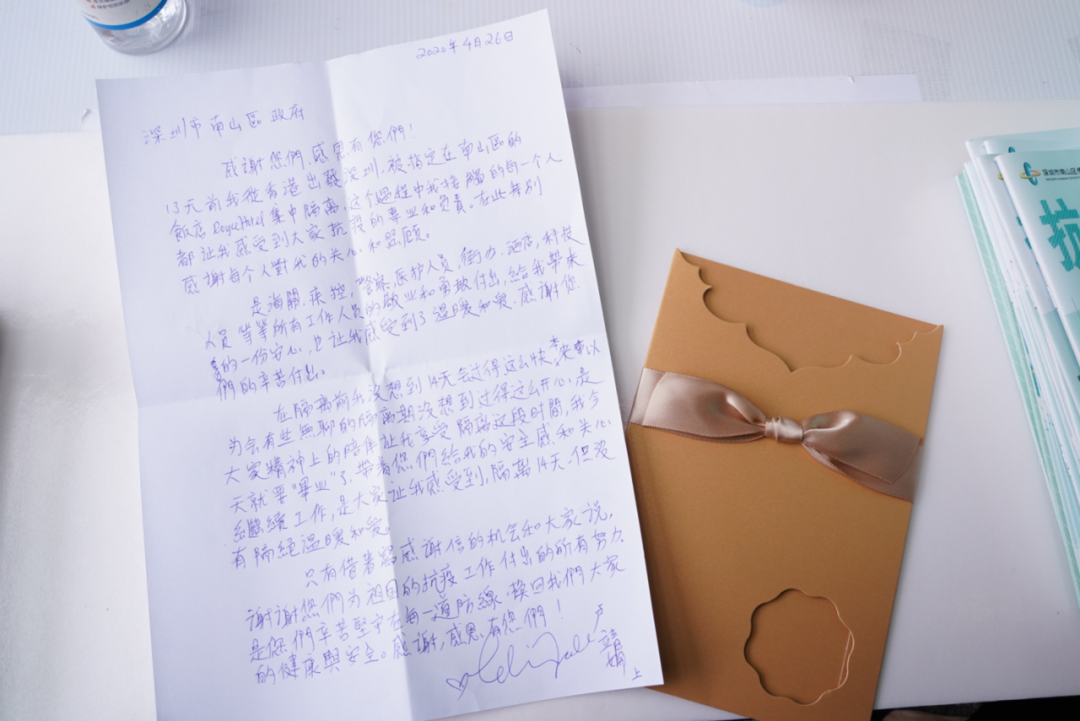 2020年4月26日
深圳市南山區政府
感謝您們,感恩有您們!
13天前我從香港出發深圳,被指定在南山區的
飯店 Royal Hotel 集中隔離,这个過程中我接觸的每一个人
都让我感受到大家抗疫的專业和负責。在此特別
感謝每个人對我的关心和照顧。
是海關、疾控,警察,医护人员,街办,酒店,科技
人员等等所有工作人员的敬业和勇敢付出,給我帶來
的一份安心,也让我感受到了温暖和爱.感谢您
們的辛苦付出。
在隔离前我没想到14天会过得这么快,本來以
为会有些無聊的隔离期没想到过得这么开心.是
大家精神上的陪伴让我享受隔离这段时間,我今
天就要"畢业"了,带着您們給我的安全感和关心
繼續工作,是大家让我感受到,隔離14天,但没
有隔绝温暖和爱。
只有借着感謝信的机会和大家说,
谢谢您們为祖国的抗疫工作付出的所有努力
是您們辛苦坚守在每一道防線,換回我們大家
的健康與安全。感謝,感恩,有您們!
靖
上
深圳市南山区
抗